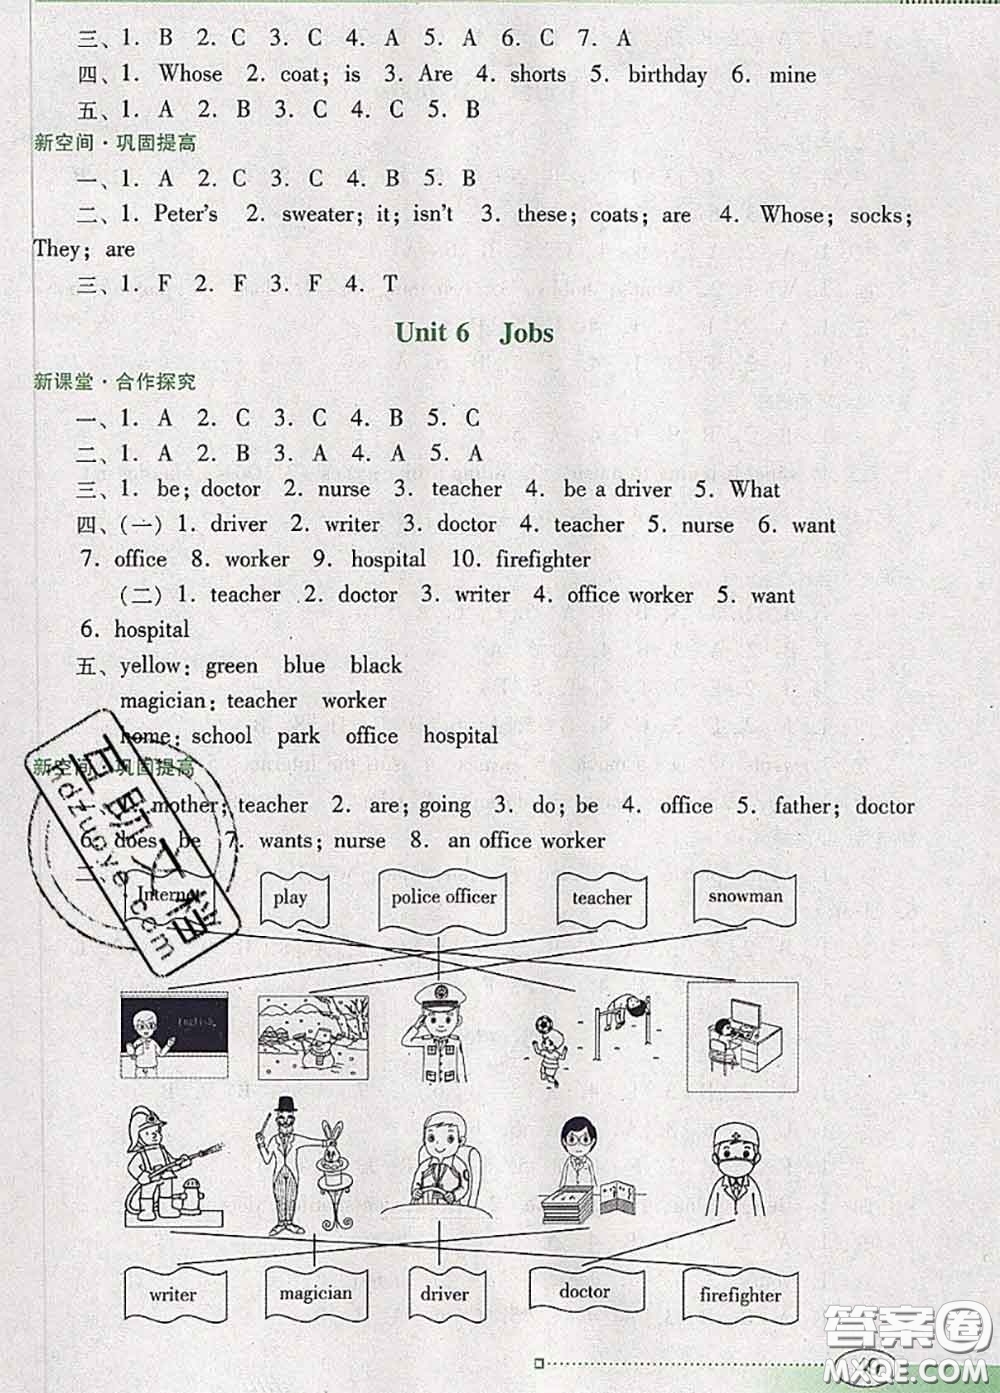 三、1. B 2. C 3. C 4. A 5. A 6. C 7. A
四、1. Whose 2. coat; is 3. Are 4. shorts 5. birthday 6. mine
五、1. A 2. B 3. C 4. C 5. B
新空间·巩固提高
一、1. A 2. C 3. C 4. B 5. B
二、1. Peter's 2. sweater; it; isn't 3. these; coats; are 4. Whose; socks;
They; are
三、1. F 2. F 3. F 4. T
Unit 6 Jobs
新课堂·合作探究
一、1. A 2. C 3. C 4. B 5. C
二、1. A 2. B 3. A 4. A 5. A
三、1. be; doctor 2. nurse 3. teacher 4. be a driver 5. What
四、(一) 1. driver 2. writer 3. doctor 4. teacher 5. nurse 6. want
7. office 8. worker 9. hospital 10. firefighter
(二) 1. teacher 2. doctor 3. writer 4. office worker 5. want
6. hospital
五、yellow: green blue black
magician: teacher worker
home: school park office hospital
新空间·巩固提高
mother; teacher 2. are; going 3. do; be 4. office 5. father; doctor
6. does; be 7. wants; nurse 8. an office worker
二、
Internet play police officer teacher snowman
English
writer magician driver doctor firefighter
答案圈
MXQE.COM
hdzuoye.com